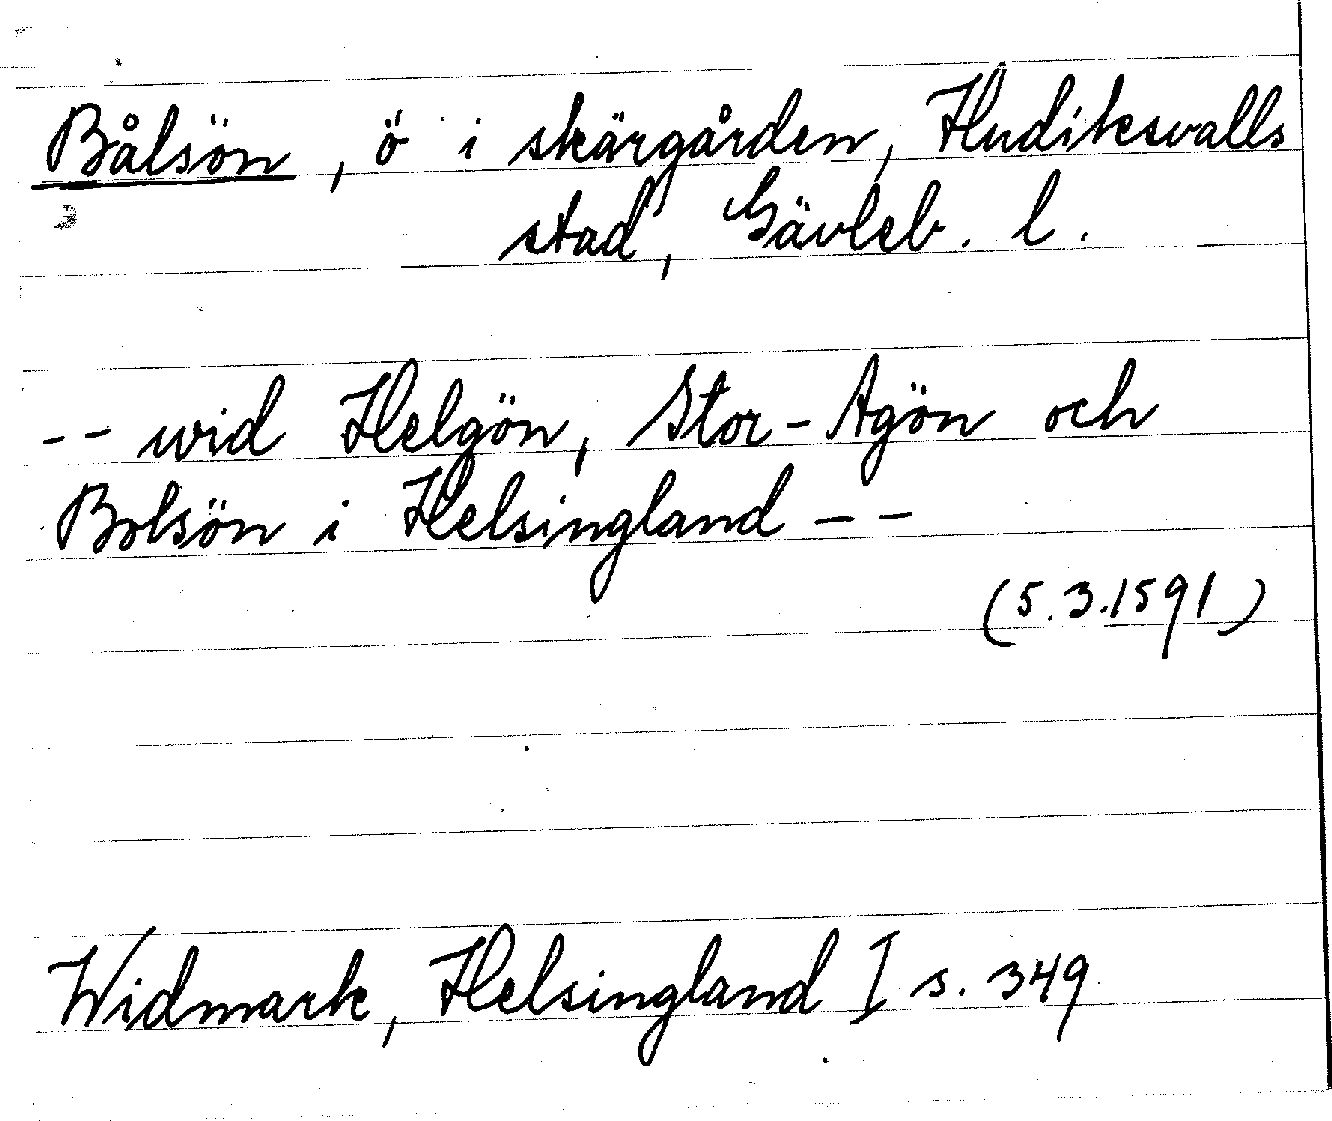 Bålsön, ö i skärgården, Hudiksvalls
stad, Gävleb. l.
-- wid Helgön, Stor-Agön och
Bolsön i Helsingland --
(5.3.1591)
Widmark, Helsingland I s. 349